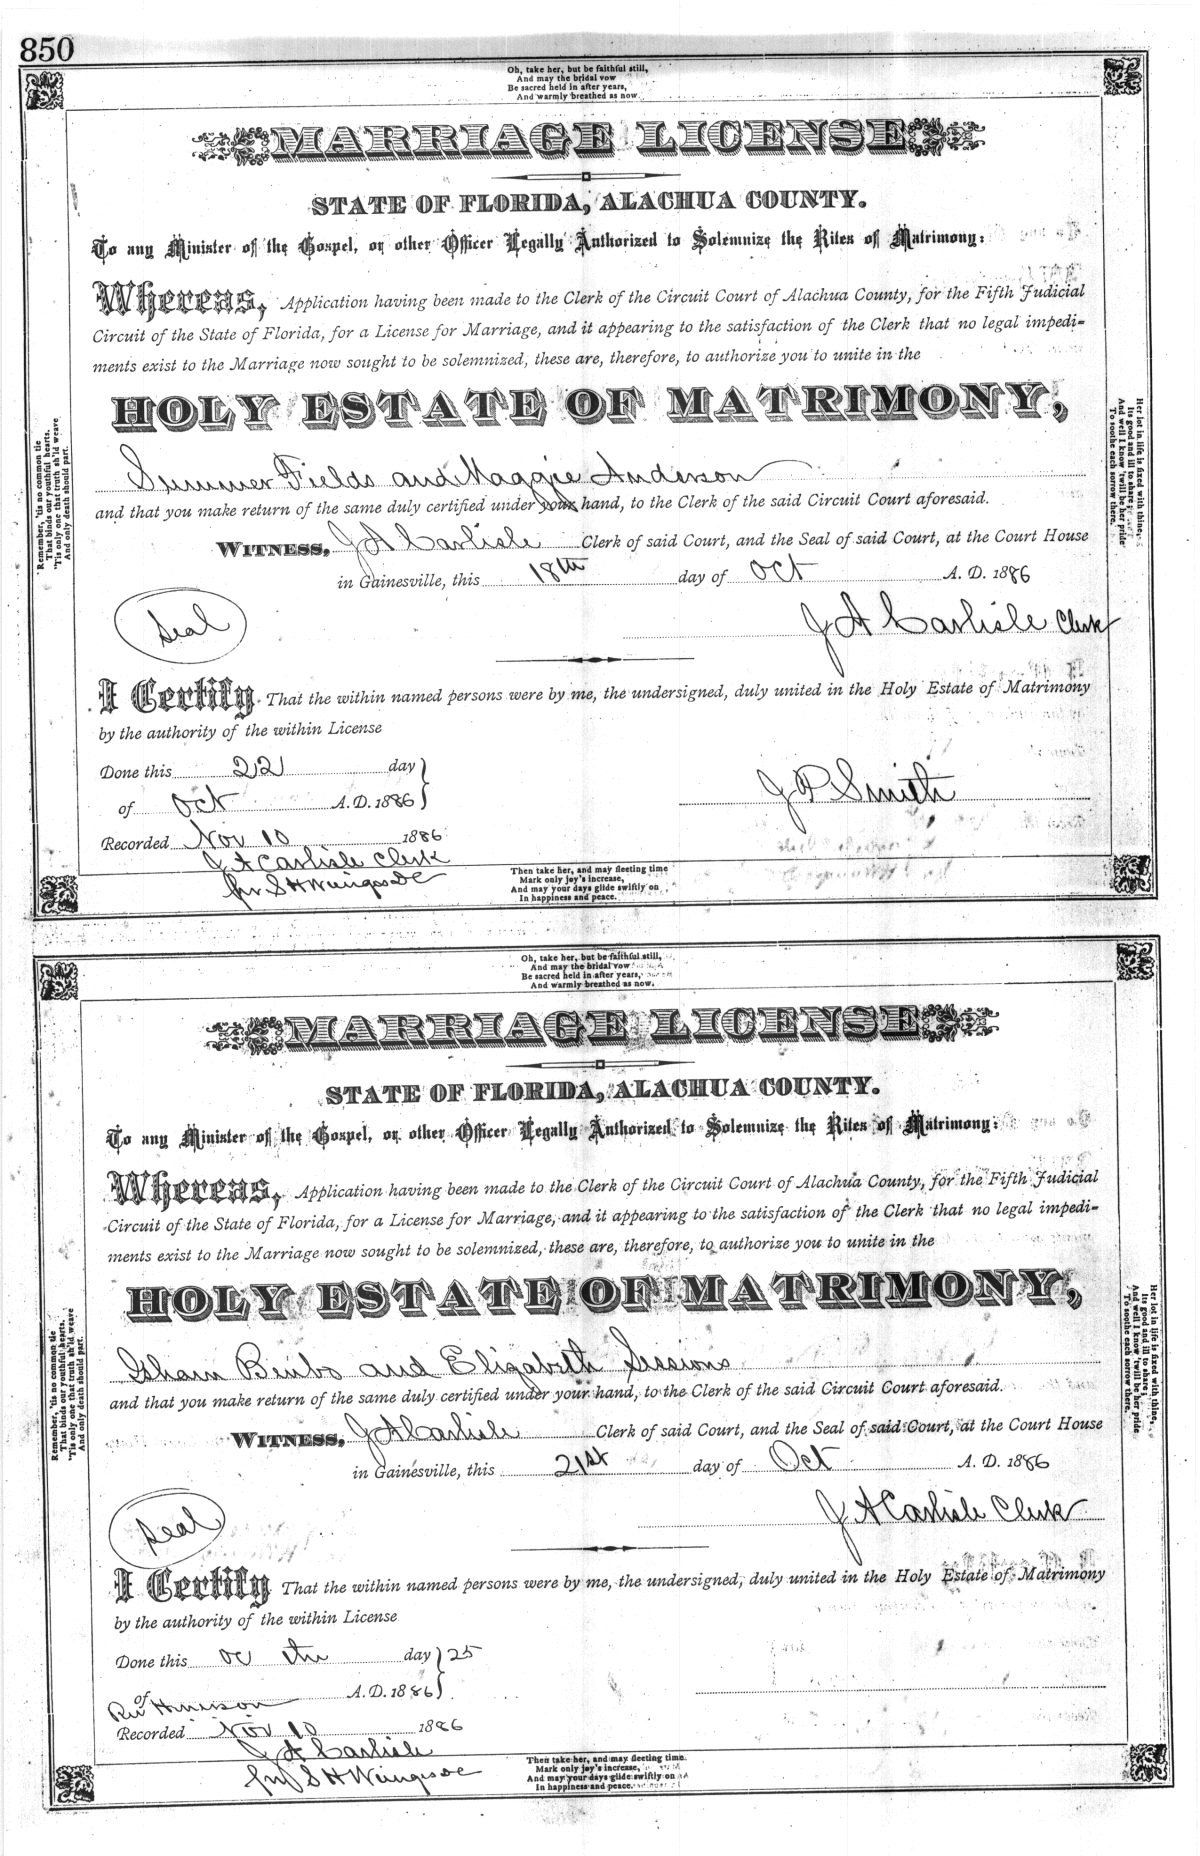 850
Oh, take her, but be faithful still,
And may the bridal vow
Be sacred held in after years,
And warmly breathed as now.
MARRIAGE LICENSE
STATE OF FLORIDA, ALACHUA COUNTY.
To any Minister of the Gospel, or other Officer Legally Authorized to Solemnize the Rites of Matrimony:
Whereas, Application having been made to the Clerk of the Circuit Court of Alachua County, for the Fifth Judicial
Circuit of the State of Florida, for a License for Marriage, and it appearing to the satisfaction of the Clerk that no legal impedi-
ments exist to the Marriage now sought to be solemnized, these are, therefore, to authorize you to unite in the
HOLY ESTATE OF MATRIMONY,
Summer Fields and Maggie Anderson
and that you make return of the same duly certified under your hand, to the Clerk of the said Circuit Court aforesaid.
WITNESS, J A Carlisle Clerk of said Court, and the Seal of said Court, at the Court House
in Gainesville, this 18th day of Oct A. D. 1886
Seal
J A Carlisle Clerk
I Certify That the within named persons were by me, the undersigned, duly united in the Holy Estate of Matrimony
by the authority of the within License
Done this 22 day
of Oct A. D. 1886
J P Smith
Recorded Nov 10 1886
J A Carlisle Clerk
S H Wienges DC
Remember, 'tis no common tie
That binds our youthful hearts.
'Tis only one that truth sh'ld weave
And only death should part.
Her lot in life is fixed with thine,
Its good and ill to share;
And well I know 'twill be her pride
To soothe each sorrow there.
Then take her, and may fleeting time
Mark only joy's increase,
And may your days glide swiftly on
In happiness and peace.
Oh, take her, but be faithful still,
And may the bridal vow
Be sacred held in after years,
And warmly breathed as now.
MARRIAGE LICENSE
STATE OF FLORIDA, ALACHUA COUNTY.
To any Minister of the Gospel, or other Officer Legally Authorized to Solemnize the Rites of Matrimony:
Whereas, Application having been made to the Clerk of the Circuit Court of Alachua County, for the Fifth Judicial
Circuit of the State of Florida, for a License for Marriage, and it appearing to the satisfaction of the Clerk that no legal impedi-
ments exist to the Marriage now sought to be solemnized, these are, therefore, to authorize you to unite in the
HOLY ESTATE OF MATRIMONY,
Isham Bimbo and Elizabeth Sessions
and that you make return of the same duly certified under your hand, to the Clerk of the said Circuit Court aforesaid.
WITNESS, J A Carlisle Clerk of said Court, and the Seal of said Court, at the Court House
in Gainesville, this 21st day of Oct A. D. 1886
Seal
J A Carlisle Clerk
I Certify That the within named persons were by me, the undersigned, duly united in the Holy Estate of Matrimony
by the authority of the within License
Done this oc the day 25
of A. D. 1886
Rev
Recorded Nov 10 1886
J A Carlisle
S H Wienges DC
Remember, 'tis no common tie
That binds our youthful hearts.
'Tis only one that truth sh'ld weave
And only death should part.
Her lot in life is fixed with thine,
Its good and ill to share;
And well I know 'twill be her pride
To soothe each sorrow there.
Then take her, and may fleeting time
Mark only joy's increase,
And may your days glide swiftly on
In happiness and peace.